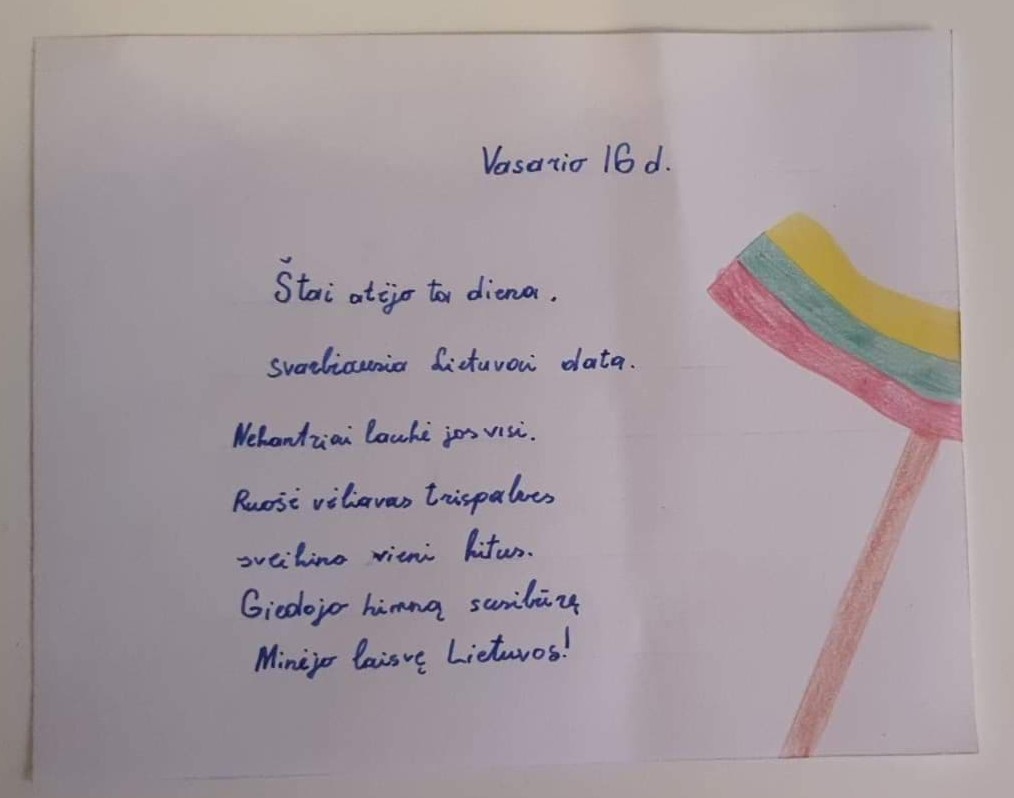 Vasario 16 d.
Štai atėjo ta diena.
svarbiausia Lietuvai data.
Nekantriai laukė jos visi.
Ruošė vėliavas trispalves
sveikino vieni kitus.
Giedojo himną susibūrę
Minėjo laisvę Lietuvos!